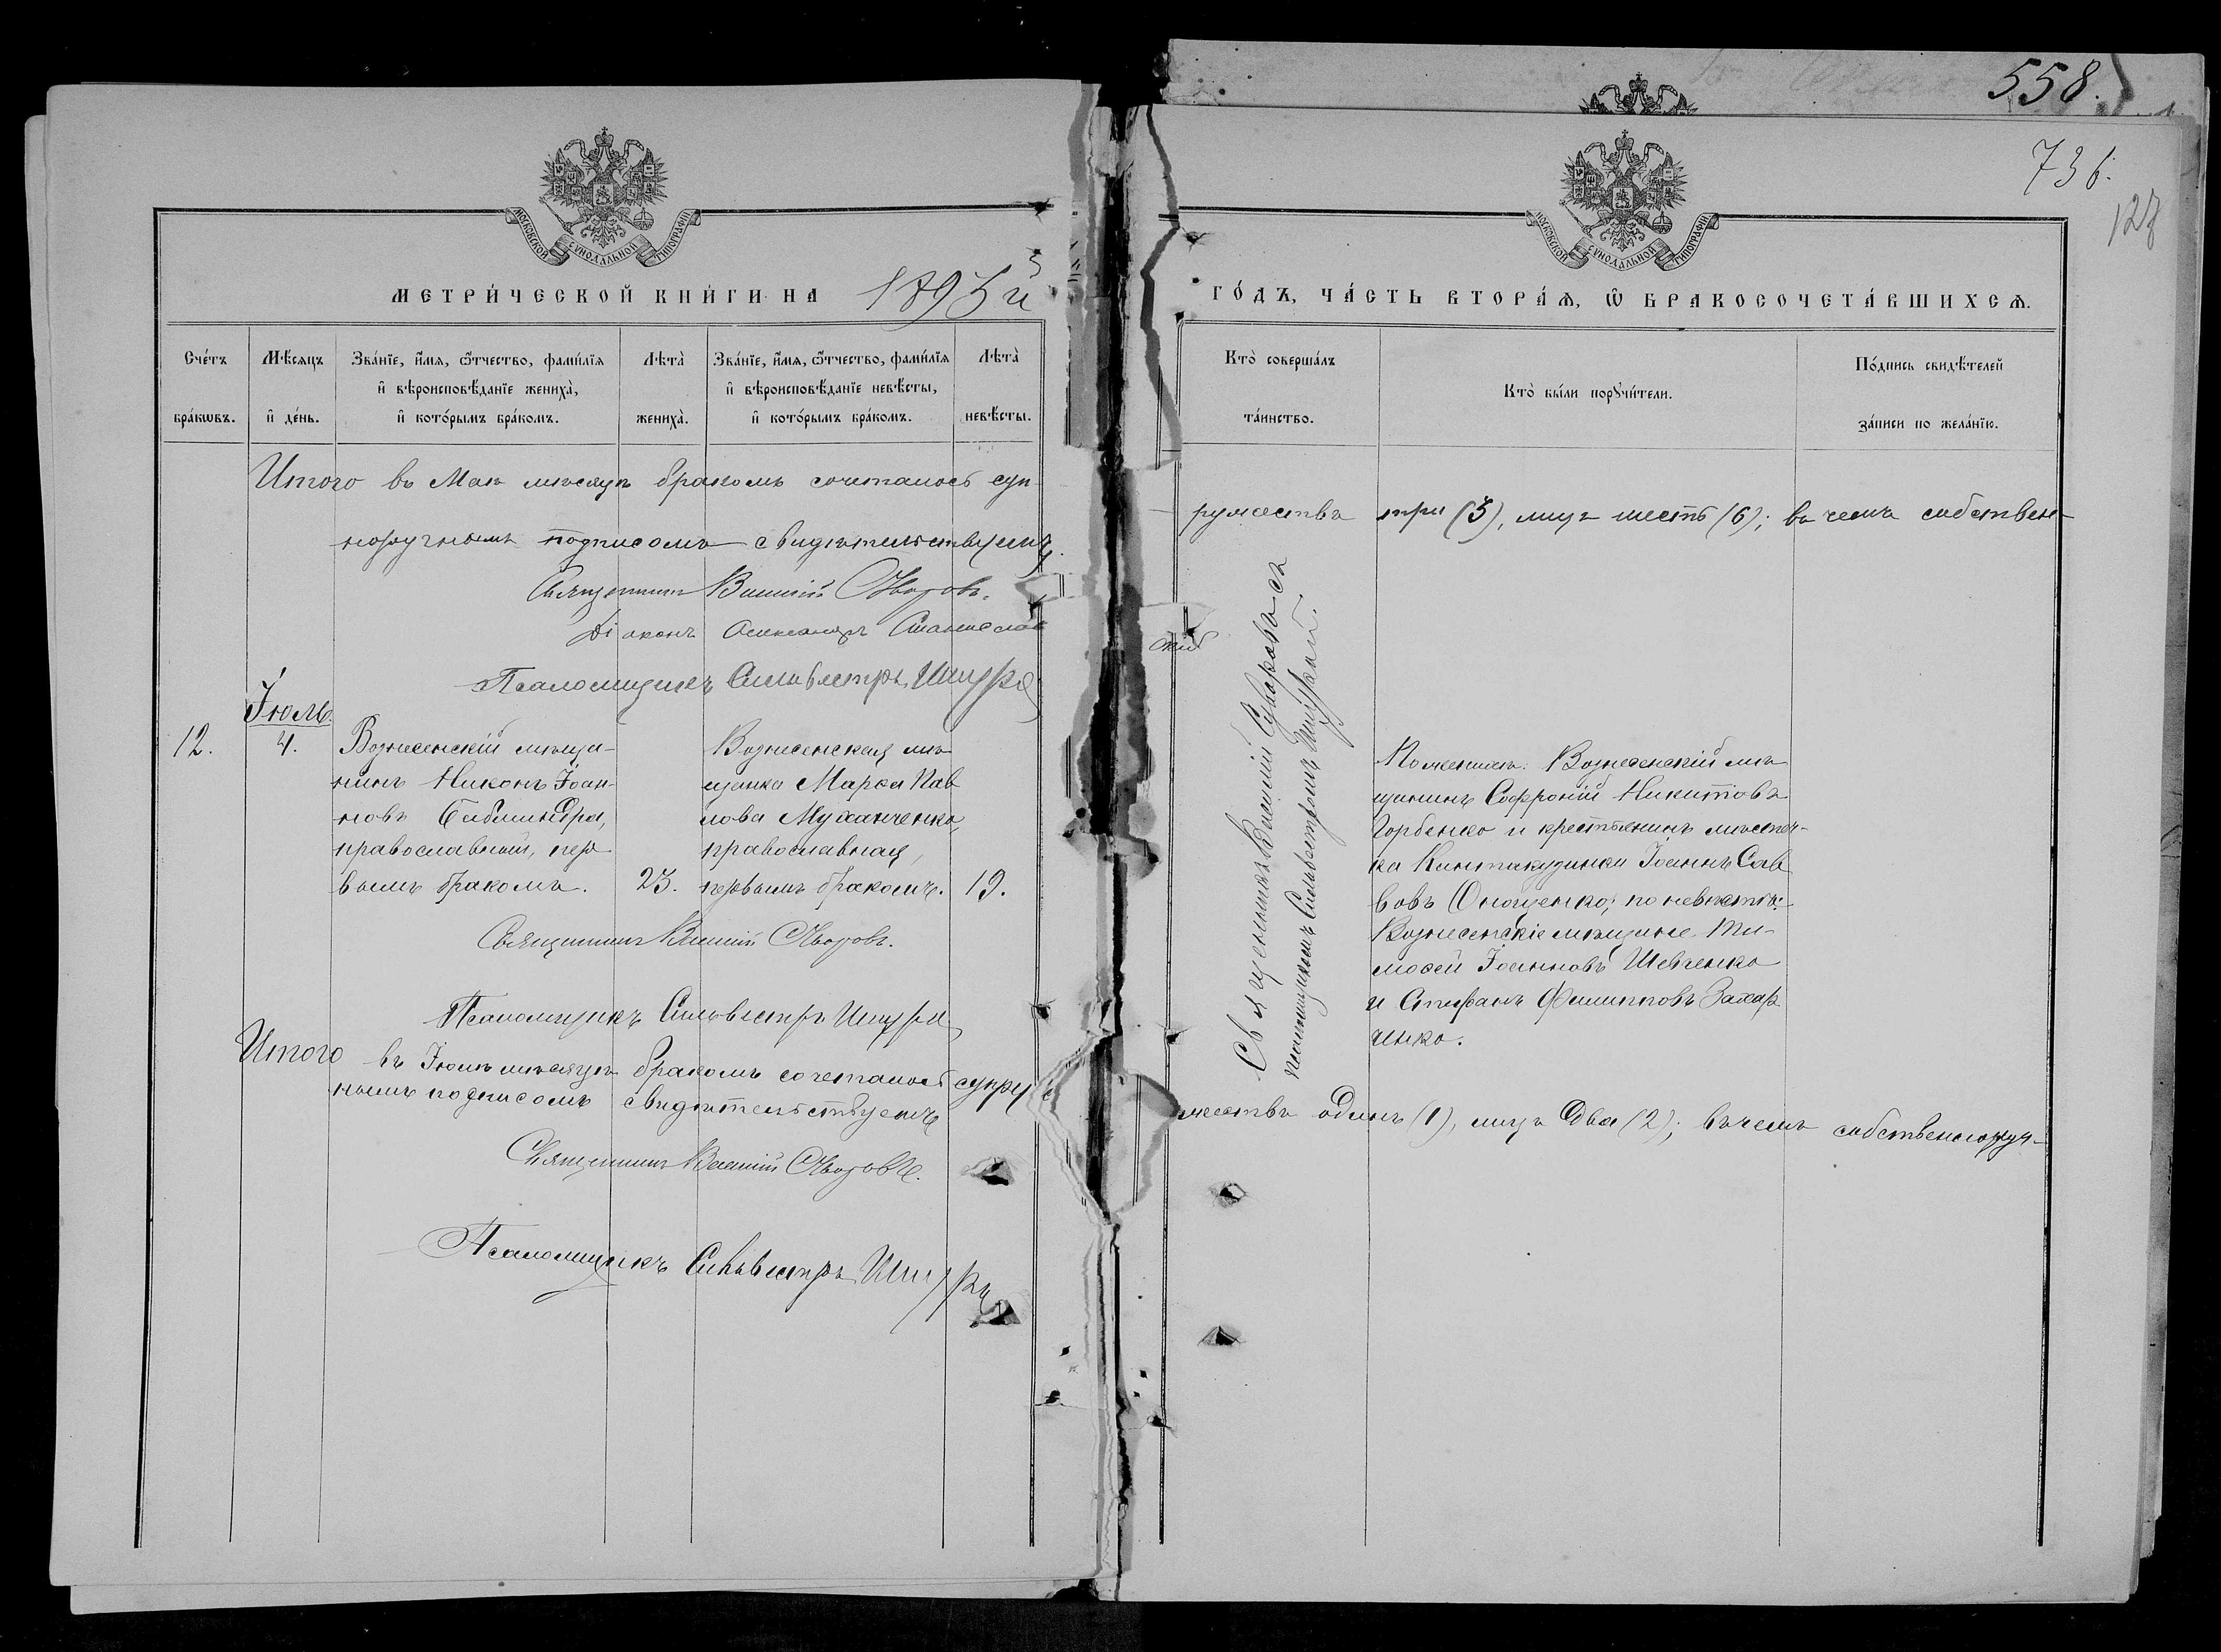 558.
736.
128
МОСКОВСКОЙ СѴНОДАЛЬНОЙ ТИПОГРАФІИ
МОСКОВСКОЙ СѴНОДАЛЬНОЙ ТИПОГРАФІИ
МЕТРИ́ЧЕСКОЙ КНИ́ГИ НА 1895й
ГО́ДЪ, ЧА́СТЬ ВТОРА́Ѧ, Ѿ БРАКОСОЧЕТА́ВШИХСѦ.
Сче́тъ
бра́кѡвъ.
Мѣ́сяцъ
и҆ де́нь.
Зва́нїе, и҆́мѧ, ѻ҆́тчество, фамі́лїѧ
и҆ вѣроисповѣ́данїе жениха̀,
и҆ кото́рымъ бра́комъ.
Лѣта̀
жениха̀.
Зва́нїе, и҆́мѧ, ѻ҆́тчество, фамі́лїѧ
и҆ вѣроисповѣ́данїе невѣ́сты,
и҆ кото́рымъ бра́комъ.
Лѣта̀
невѣ́сты.
Кто̀ соверша́лъ
та́инство.
Кто̀ бы́ли порꙋчи́тели.
По́дпись свидѣ́телей
за́писи по жела́нїю.
Итого въ Маѣ мѣсяцѣ бракомъ сочеталось суп-
ружествъ три (3), лицъ шесть (6); въ чемъ собствен-
норучнымъ подписомъ свидѣтельствуемъ.
Священникъ Василій
Діаконъ Александръ
Псаломщикъ Сильвестръ Шпура
Іюль
12.
4.
Вознесенскій мѣща-
нинъ Никонъ Іоан-
новъ
православный, пер-
вымъ бракомъ.
23.
Вознесенская мѣ-
щанка Марѳа Пав
лова Муханченко,
православная,
первымъ бракомъ.
19.
Священникъ Василій
Псаломщикъ Сильвестръ Шпура
Священникъ Василій съ
псаломщикомъ Сильвестромъ Шпурой.
По женихѣ: Вознесенскій мѣ
щанинъ Софроній Никитовъ
Горбенко и крестьянинъ мѣстеч-
ка Кантакузинки Іоаннъ Сав
вовъ Онощенко; по невѣстѣ:
Вознесенскіе мѣщане Ти-
моѳей Іоанновъ Шевченко
и Стефанъ Филипповъ Захар
ченко.
Итого въ Іюлѣ мѣсяцѣ бракомъ сочеталось супру
жествъ одинъ (1), лицъ два (2); въ чемъ собственноруч-
нымъ подписомъ свидѣтельствуемъ
Священникъ Василій
Псаломщикъ Сильвестръ Шпура